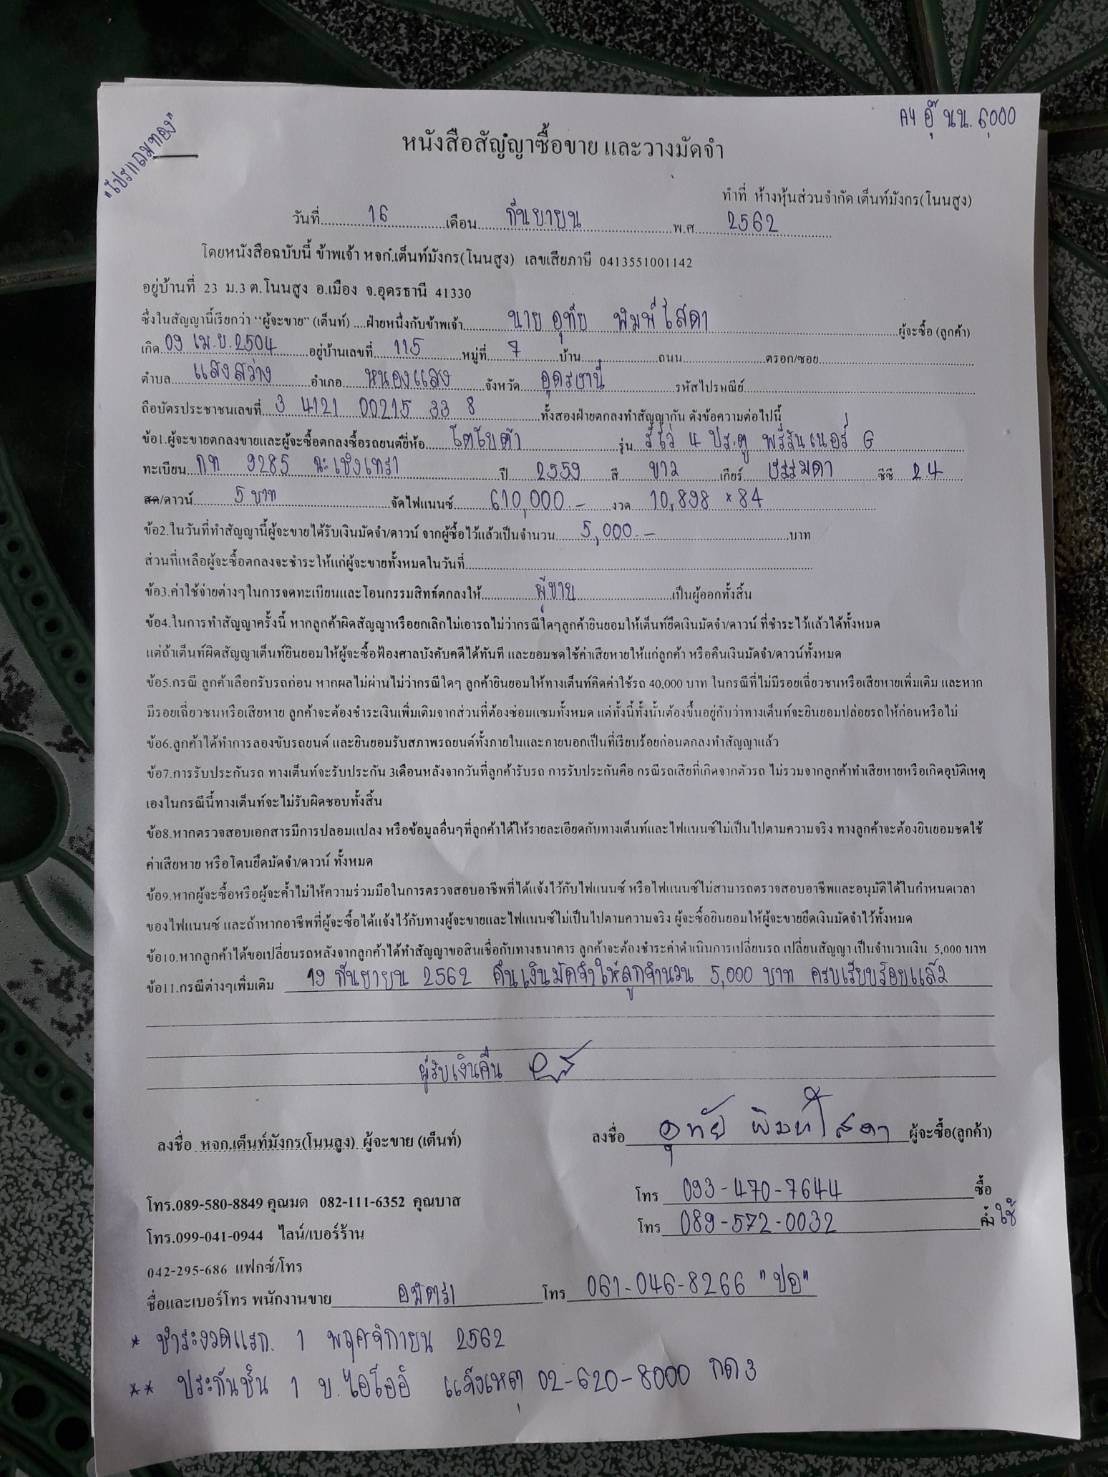 A4 อุ๊ นน. 6,000
"โปรแถมทอง"
หนังสือสัญญาซื้อขาย และวางมัดจำ
ทำที่ ห้างหุ้นส่วนจำกัด เต็นท์มังกร(โนนสูง)
วันที่ 16 เดือน กันยายน พ.ศ. 2562
โดยหนังสือฉบับนี้ ข้าพเจ้า หจก.เต็นท์มังกร(โนนสูง) เลขเสียภาษี 0413551001142
อยู่บ้านที่ 23 ม.3 ต.โนนสูง อ.เมือง จ.อุดรธานี 41330
ซึ่งในสัญญานี้เรียกว่า "ผู้จะขาย" (เต็นท์) ....ฝ่ายหนึ่งกับข้าพเจ้า นาย อุทัย พิมพ์ไสดา ผู้จะซื้อ (ลูกค้า)
เกิด 09 เม.ย. 2504 อยู่บ้านเลขที่ 115 หมู่ที่ 7 บ้าน ถนน ตรอก/ซอย
ตำบล แสงสว่าง อำเภอ หนองแสง จังหวัด อุดรธานี รหัสไปรษณีย์
ถือบัตรประชาชนเลขที่ 3 4121 00215 33 8 ทั้งสองฝ่ายตกลงทำสัญญากัน ดังข้อความต่อไปนี้
ข้อ1.ผู้จะขายตกลงขายและผู้จะซื้อตกลงซื้อรถยนต์ยี่ห้อ โตโยต้า รุ่น รีโว่ 4 ประตู พรีรันเนอร์ G
ทะเบียน กท 9285 ฉะเชิงเทรา ปี 2559 สี ขาว เกียร์ ธรรมดา ซีซี 2.4
สด/ดาวน์ 5 บาท จัดไฟแนนซ์ 610,000.- งวด 10,898 × 84
ข้อ2.ในวันที่ทำสัญญานี้ผู้จะขายได้รับเงินมัดจำ/ดาวน์ จากผู้ซื้อไว้แล้วเป็นจำนวน 5,000.- บาท
ส่วนที่เหลือผู้จะซื้อตกลงจะชำระให้แก่ผู้จะขายทั้งหมดในวันที่
ข้อ3.ค่าใช้จ่ายต่างๆในการจดทะเบียนและโอนกรรมสิทธ์ตกลงให้ ผู้ขาย เป็นผู้ออกทั้งสิ้น
ข้อ4.ในการทำสัญญาครั้งนี้ หากลูกค้าผิดสัญญาหรือยกเลิกไม่เอารถไม่ว่ากรณีใดๆลูกค้ายินยอมให้เต็นท์ยึดเงินมัดจำ/ดาวน์ ที่ชำระไว้แล้วได้ทั้งหมด
แต่ถ้าเต็นท์ผิดสัญญาเต็นท์ยินยอมให้ผู้จะซื้อฟ้องศาลบังคับคดีได้ทันที และยอมชดใช้ค่าเสียหายให้แก่ลูกค้า หรือคืนเงินมัดจำ/ดาวน์ทั้งหมด
ข้อ5.กรณี ลูกค้าเลือกรับรถก่อน หากผลไม่ผ่านไม่ว่ากรณีใดๆ ลูกค้ายินยอมให้ทางเต็นท์คิดค่าใช้รถ 40,000 บาท ในกรณีที่ไม่มีรอยเฉี่ยวชนหรือเสียหายเพิ่มเติม และหาก
มีรอยเฉี่ยวชนหรือเสียหาย ลูกค้าจะต้องชำระเงินเพิ่มเติมจากส่วนที่ต้องซ่อมแซมทั้งหมด แต่ทั้งนี้ทั้งนั้นต้องขึ้นอยู่กับว่าทางเต็นท์จะยินยอมปล่อยรถให้ก่อนหรือไม่
ข้อ6.ลูกค้าได้ทำการลองขับรถยนต์ และยินยอมรับสภาพรถยนต์ทั้งภายในและภายนอกเป็นที่เรียบร้อยก่อนตกลงทำสัญญาแล้ว
ข้อ7.การรับประกันรถ ทางเต็นท์จะรับประกัน 3เดือนหลังจากวันที่ลูกค้ารับรถ การรับประกันคือ กรณีรถเสียที่เกิดจากตัวรถ ไม่รวมจากลูกค้าทำเสียหายหรือเกิดอุบัติเหตุ
เองในกรณีนี้ทางเต็นท์จะไม่รับผิดชอบทั้งสิ้น
ข้อ8.หากตรวจสอบเอกสารมีการปลอมแปลง หรือข้อมูลอื่นๆที่ลูกค้าได้ให้รายละเอียดกับทางเต็นท์และไฟแนนซ์ไม่เป็นไปตามความจริง ทางลูกค้าจะต้องยินยอมชดใช้
ค่าเสียหาย หรือโดนยึดมัดจำ/ดาวน์ ทั้งหมด
ข้อ9.หากผู้จะซื้อหรือผู้จะค้ำไม่ให้ความร่วมมือในการตรวจสอบอาชีพที่ได้แจ้งไว้กับไฟแนนซ์ หรือไฟแนนซ์ไม่สามารถตรวจสอบอาชีพและอนุมัติได้ในกำหนดเวลา
ของไฟแนนซ์ และถ้าหากอาชีพที่ผู้จะซื้อได้แจ้งไว้กับทางผู้จะขายและไฟแนนซ์ไม่เป็นไปตามความจริง ผู้จะซื้อยินยอมให้ผู้จะขายยึดเงินมัดจำไว้ทั้งหมด
ข้อ10.หากลูกค้าได้ขอเปลี่ยนรถหลังจากลูกค้าได้ทำสัญญาขอสินเชื่อกับทางธนาคาร ลูกค้าจะต้องชำระค่าดำเนินการเปลี่ยนรถ เปลี่ยนสัญญา เป็นจำนวนเงิน 5,000 บาท
ข้อ11.กรณีต่างๆเพิ่มเติม 19 กันยายน 2562 คืนเงินมัดจำให้ลูกจำนวน 5,000 บาท ครบเรียบร้อยแล้ว
ผู้รับเงินคืน
ลงชื่อ หจก.เต็นท์มังกร(โนนสูง) ผู้จะขาย (เต็นท์) ลงชื่อ อุทัย พิมพ์ไสดา ผู้จะซื้อ(ลูกค้า)
โทร.089-580-8849 คุณมด 082-111-6352 คุณบาส โทร 093-470-7644 ซื้อ
โทร.099-041-0944 ไลน์/เบอร์ร้าน โทร 089-572-0032 ค้ำ ใช้
042-295-686 แฟกซ์/โทร
ชื่อและเบอร์โทร พนักงานขาย อมิตรา โทร 061-046-8266 "ปอ"
* ชำระงวดแรก. 1 พฤศจิกายน 2562
** ประกันชั้น 1 บ.ไอโออิ แจ้งเหตุ 02-620-8000 กด 3